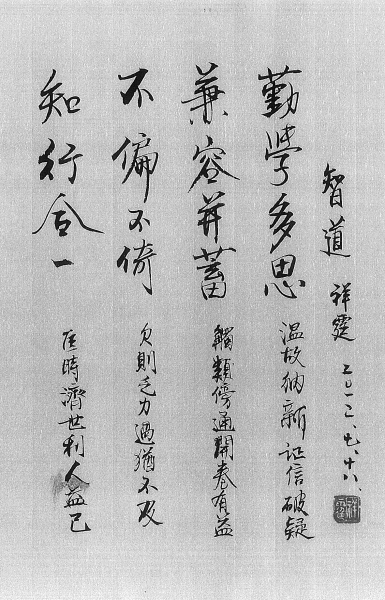 智道 祥霆 二〇一二、七、十八、
勤學多思 溫故納新 証信破疑
兼容并蓄 觸類傍通開卷有益
不偏不倚 欠則乏力過猶不及
知行合一 匡時濟世利人益己